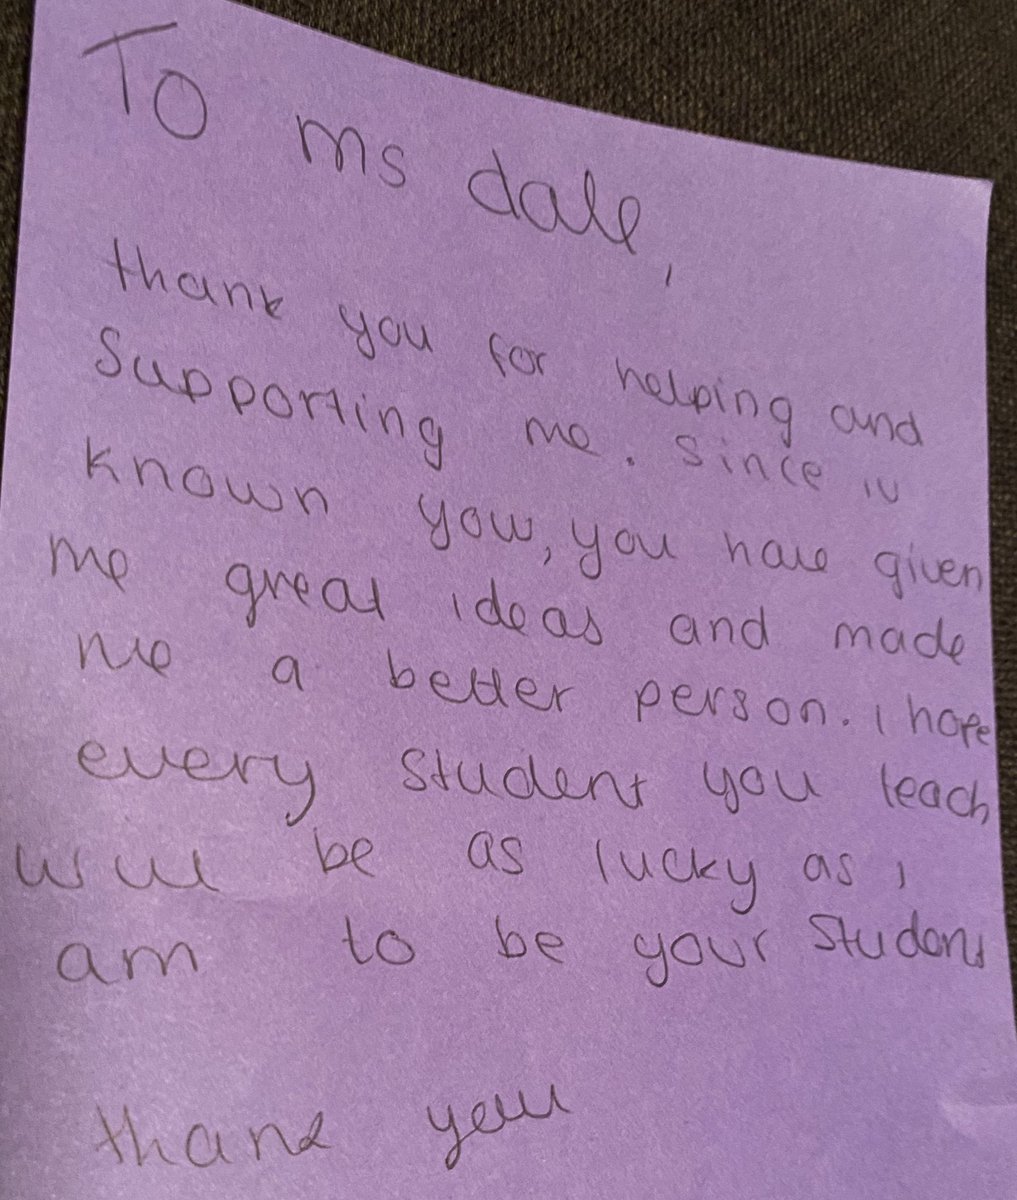 To ms dale,
thank you for helping and
Supporting me. Since iv
known you, you have given
me great ideas and made
me a better person. i hope
every student you teach
will be as lucky as i
am to be your Student
thank you